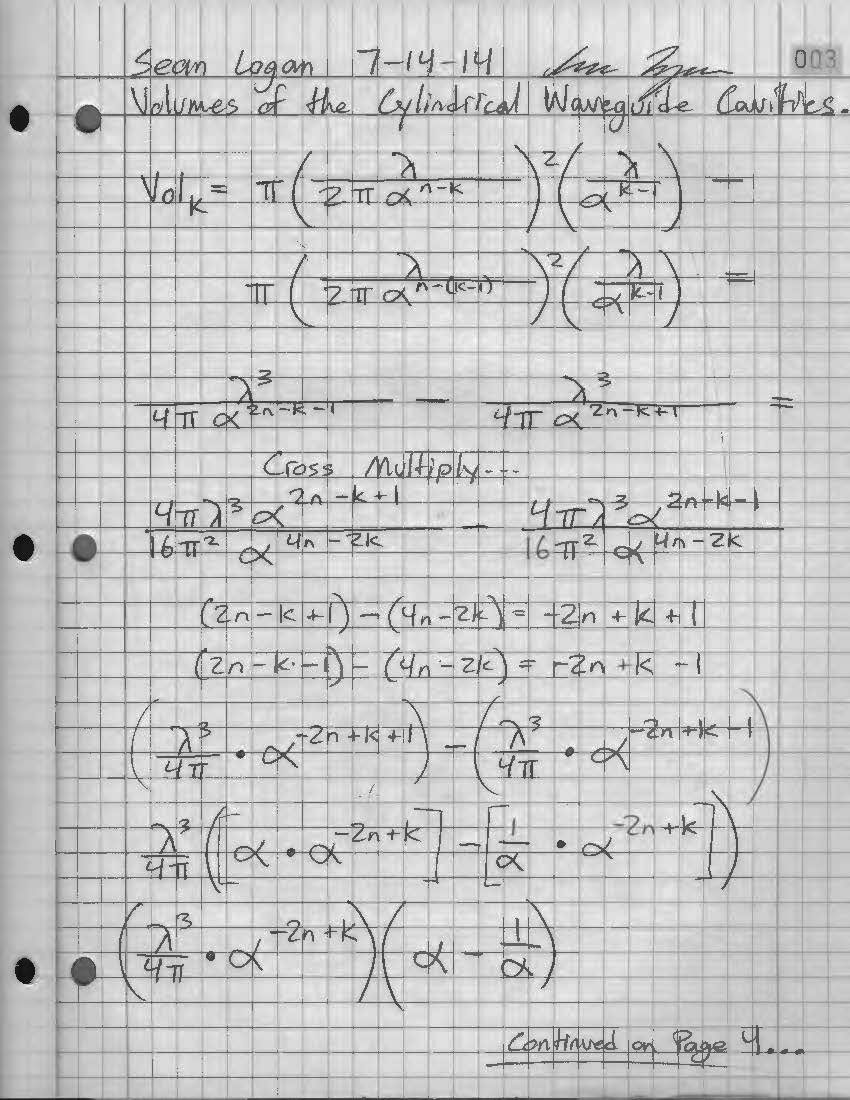 Sean Logan 7-14-14 003
Volumes of the Cylindrical Waveguide Cavities.
Vol_K = π (λ / (2 π α^(n-k)))^2 (λ / α^(k-1)) −
π (λ / (2 π α^(n-(k-1))))^2 (λ / α^(k-1)) =
λ^3 / (4π α^(2n-k-1)) − λ^3 / (4π α^(2n-k+1)) =
Cross Multiply---
(4π λ^3 α^(2n-k+1)) / (16π^2 α^(4n-2k)) − (4π λ^3 α^(2n-k-1)) / (16π^2 α^(4n-2k))
(2n-k+1) - (4n-2k) = -2n + k + 1
(2n-k-1) - (4n-2k) = -2n + k - 1
(λ^3 / 4π • α^(-2n+k+1)) − (λ^3 / 4π • α^(-2n+k-1))
λ^3 / 4π ([α • α^(-2n+k)] − [1/α • α^(-2n+k)])
(λ^3 / 4π • α^(-2n+k)) (α − 1/α)
Continued on Page 4...